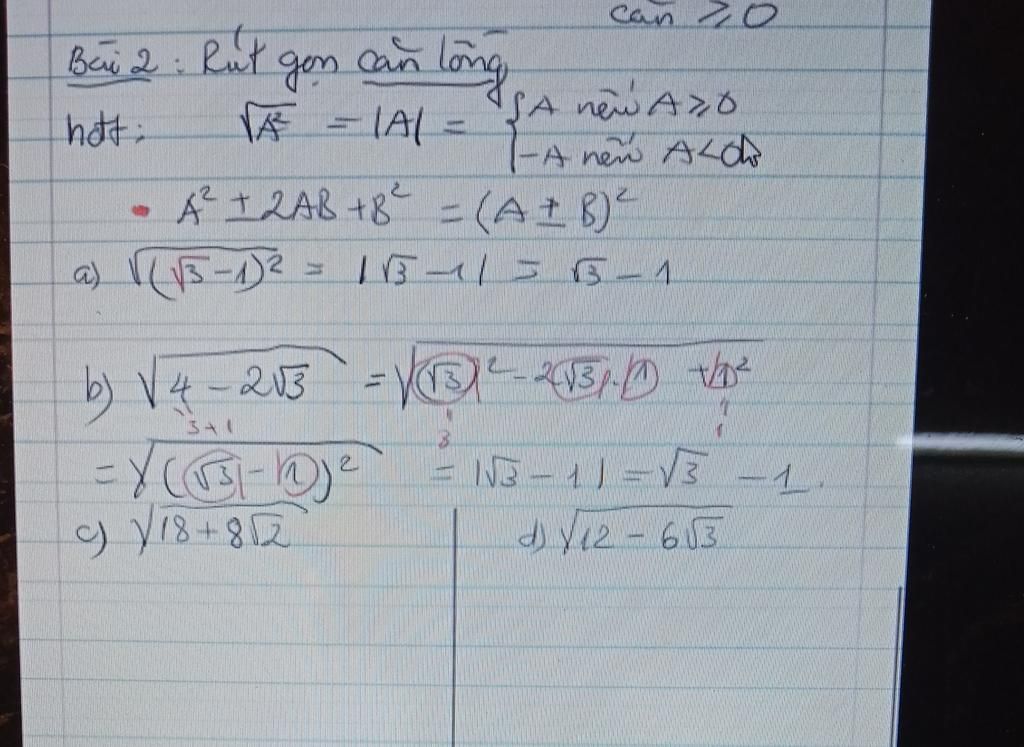 căn ⩾ 0
Bài 2 : Rút gọn căn lồng
hđt: √A² = |A| = { A nếu A ⩾ 0
-A nếu A < 0
• A² ± 2AB + B² = (A ± B)²
a) √(√3 - 1)² = |√3 - 1| = √3 - 1
b) √4 - 2√3 = √(√3)² - 2√3 . 1 + 1²
3+1 3 1
= √(√3 - 1)² = |√3 - 1| = √3 - 1.
c) √18 + 8√2 d) √12 - 6√3